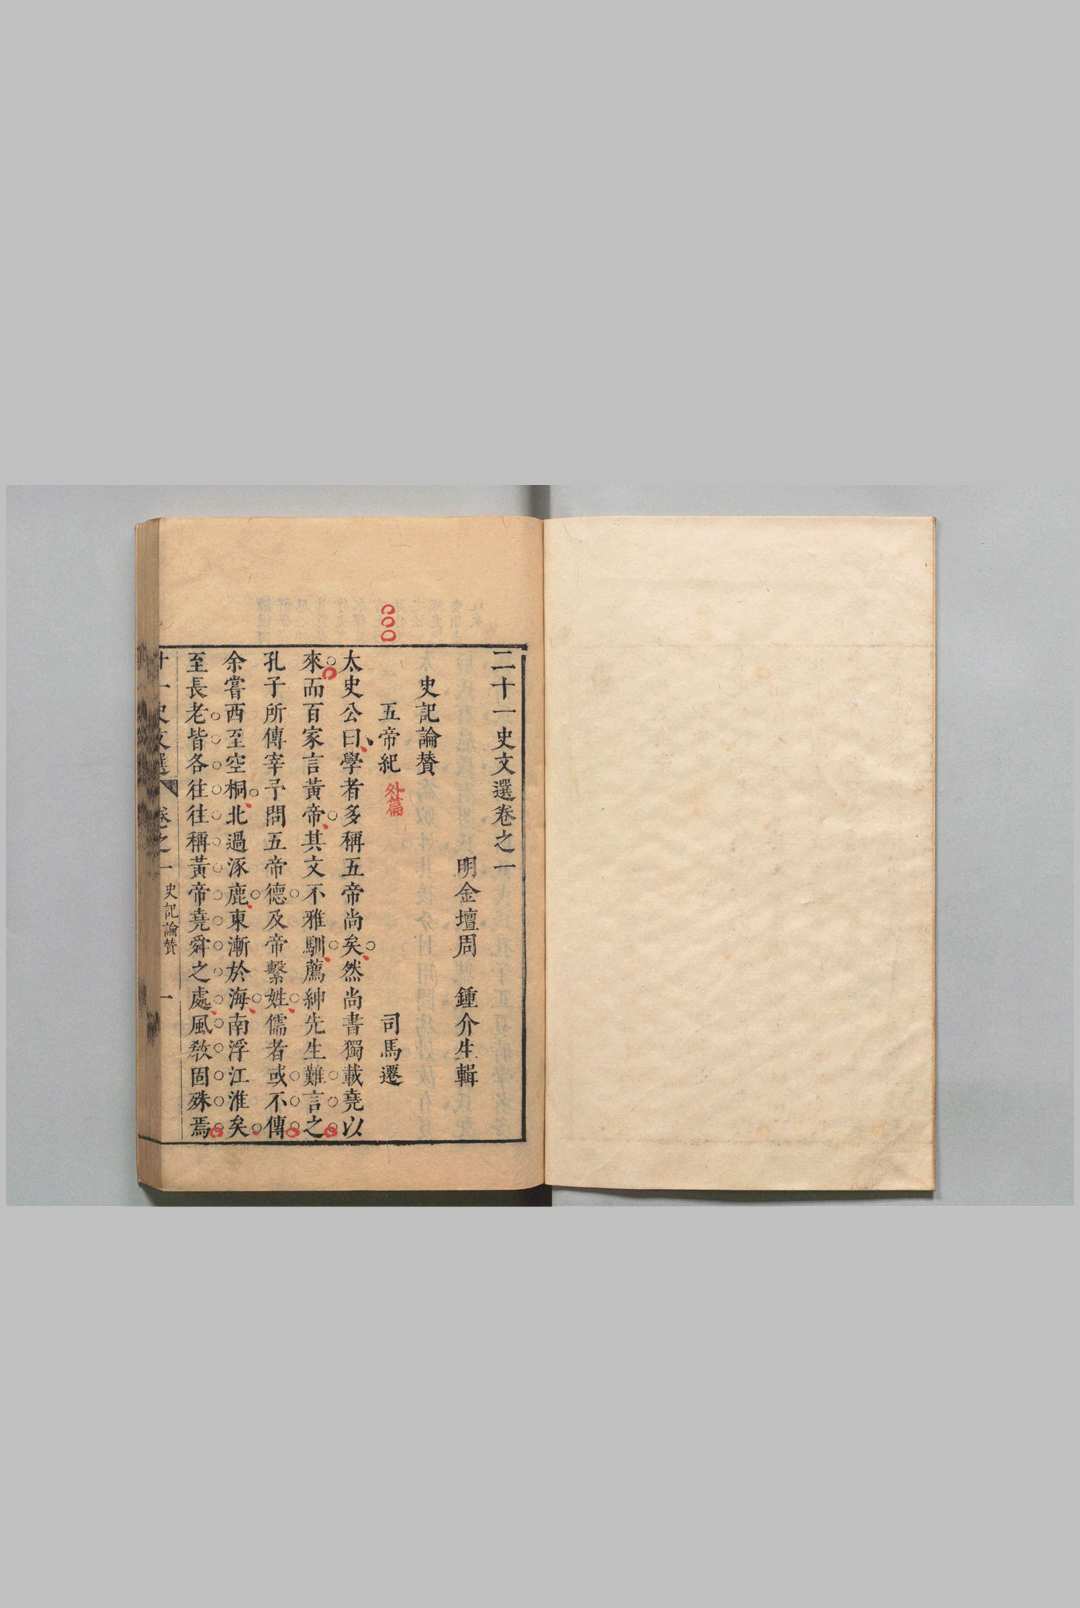 二十一史文選卷之一
明金壇周　鍾介生輯
史記論贊
五帝紀　外篇　司馬遷
太史公曰學者多稱五帝尚矣然尚書獨載堯以
來而百家言黃帝其文不雅馴薦紳先生難言之
孔子所傳宰予問五帝德及帝繫姓儒者或不傳
余嘗西至空桐北過涿鹿東漸於海南浮江淮矣
至長老皆各往往稱黃帝堯舜之處風敎固殊焉
十一史文選　卷之一　史記論贊　一